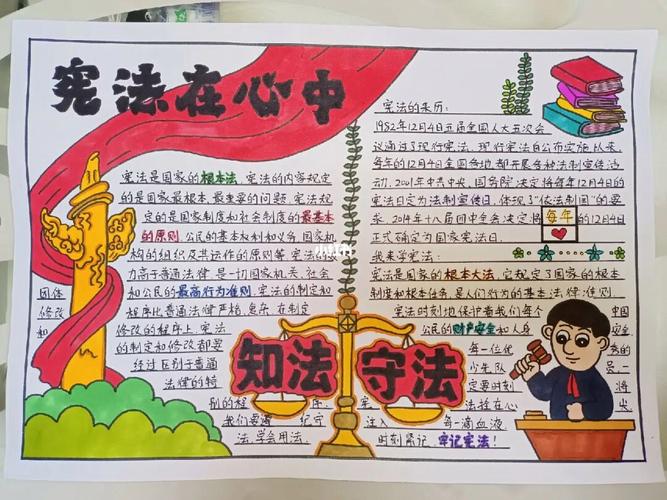 宪法在心中
宪法是国家的根本法,宪法的内容规定
的是国家最根本、最重要的问题,宪法规
定的是国家制度和社会制度的最基本
的原则,公民的基本权利和义务,国家机
构的组织及其运作的原则等,宪法
力高于普通法律,是一切国家机关、社会
团体和公民的最高行为准则,宪法的制定和
修改程序比普通法律严格,在制定
和修改的程序上,宪法
的制定和修改都要
经过区别于普通
法律的特
别的程序。
我们要遵纪守
法,学会用法。
宪法的来历:
1982年12月4日五届全国人大五次会
议通过了现行宪法,现行宪法自公布实施以来,
每年的12月4日全国各地都开展各种法制宣传活
动,2001年中共中央、国务院决定将每年12月4日的
宪法日定为法制宣传日,体现了"依法制国"的要
求,2014年十八届四中全会决定将每年的12月4日
正式确定为国家宪法日。
我来学宪法:
宪法是国家的根本大法,它规定了国家的根本
制度和根本任务,是人们行为的基本法律准则
宪法时刻地保护着我们每个中国
公民的财产安全和人身安全
每一位优秀的
少先队员,一
定要时刻将
宪法放在心尖
注入每一滴血液,
时刻紧记,牢记宪法!
知法
守法
小红书